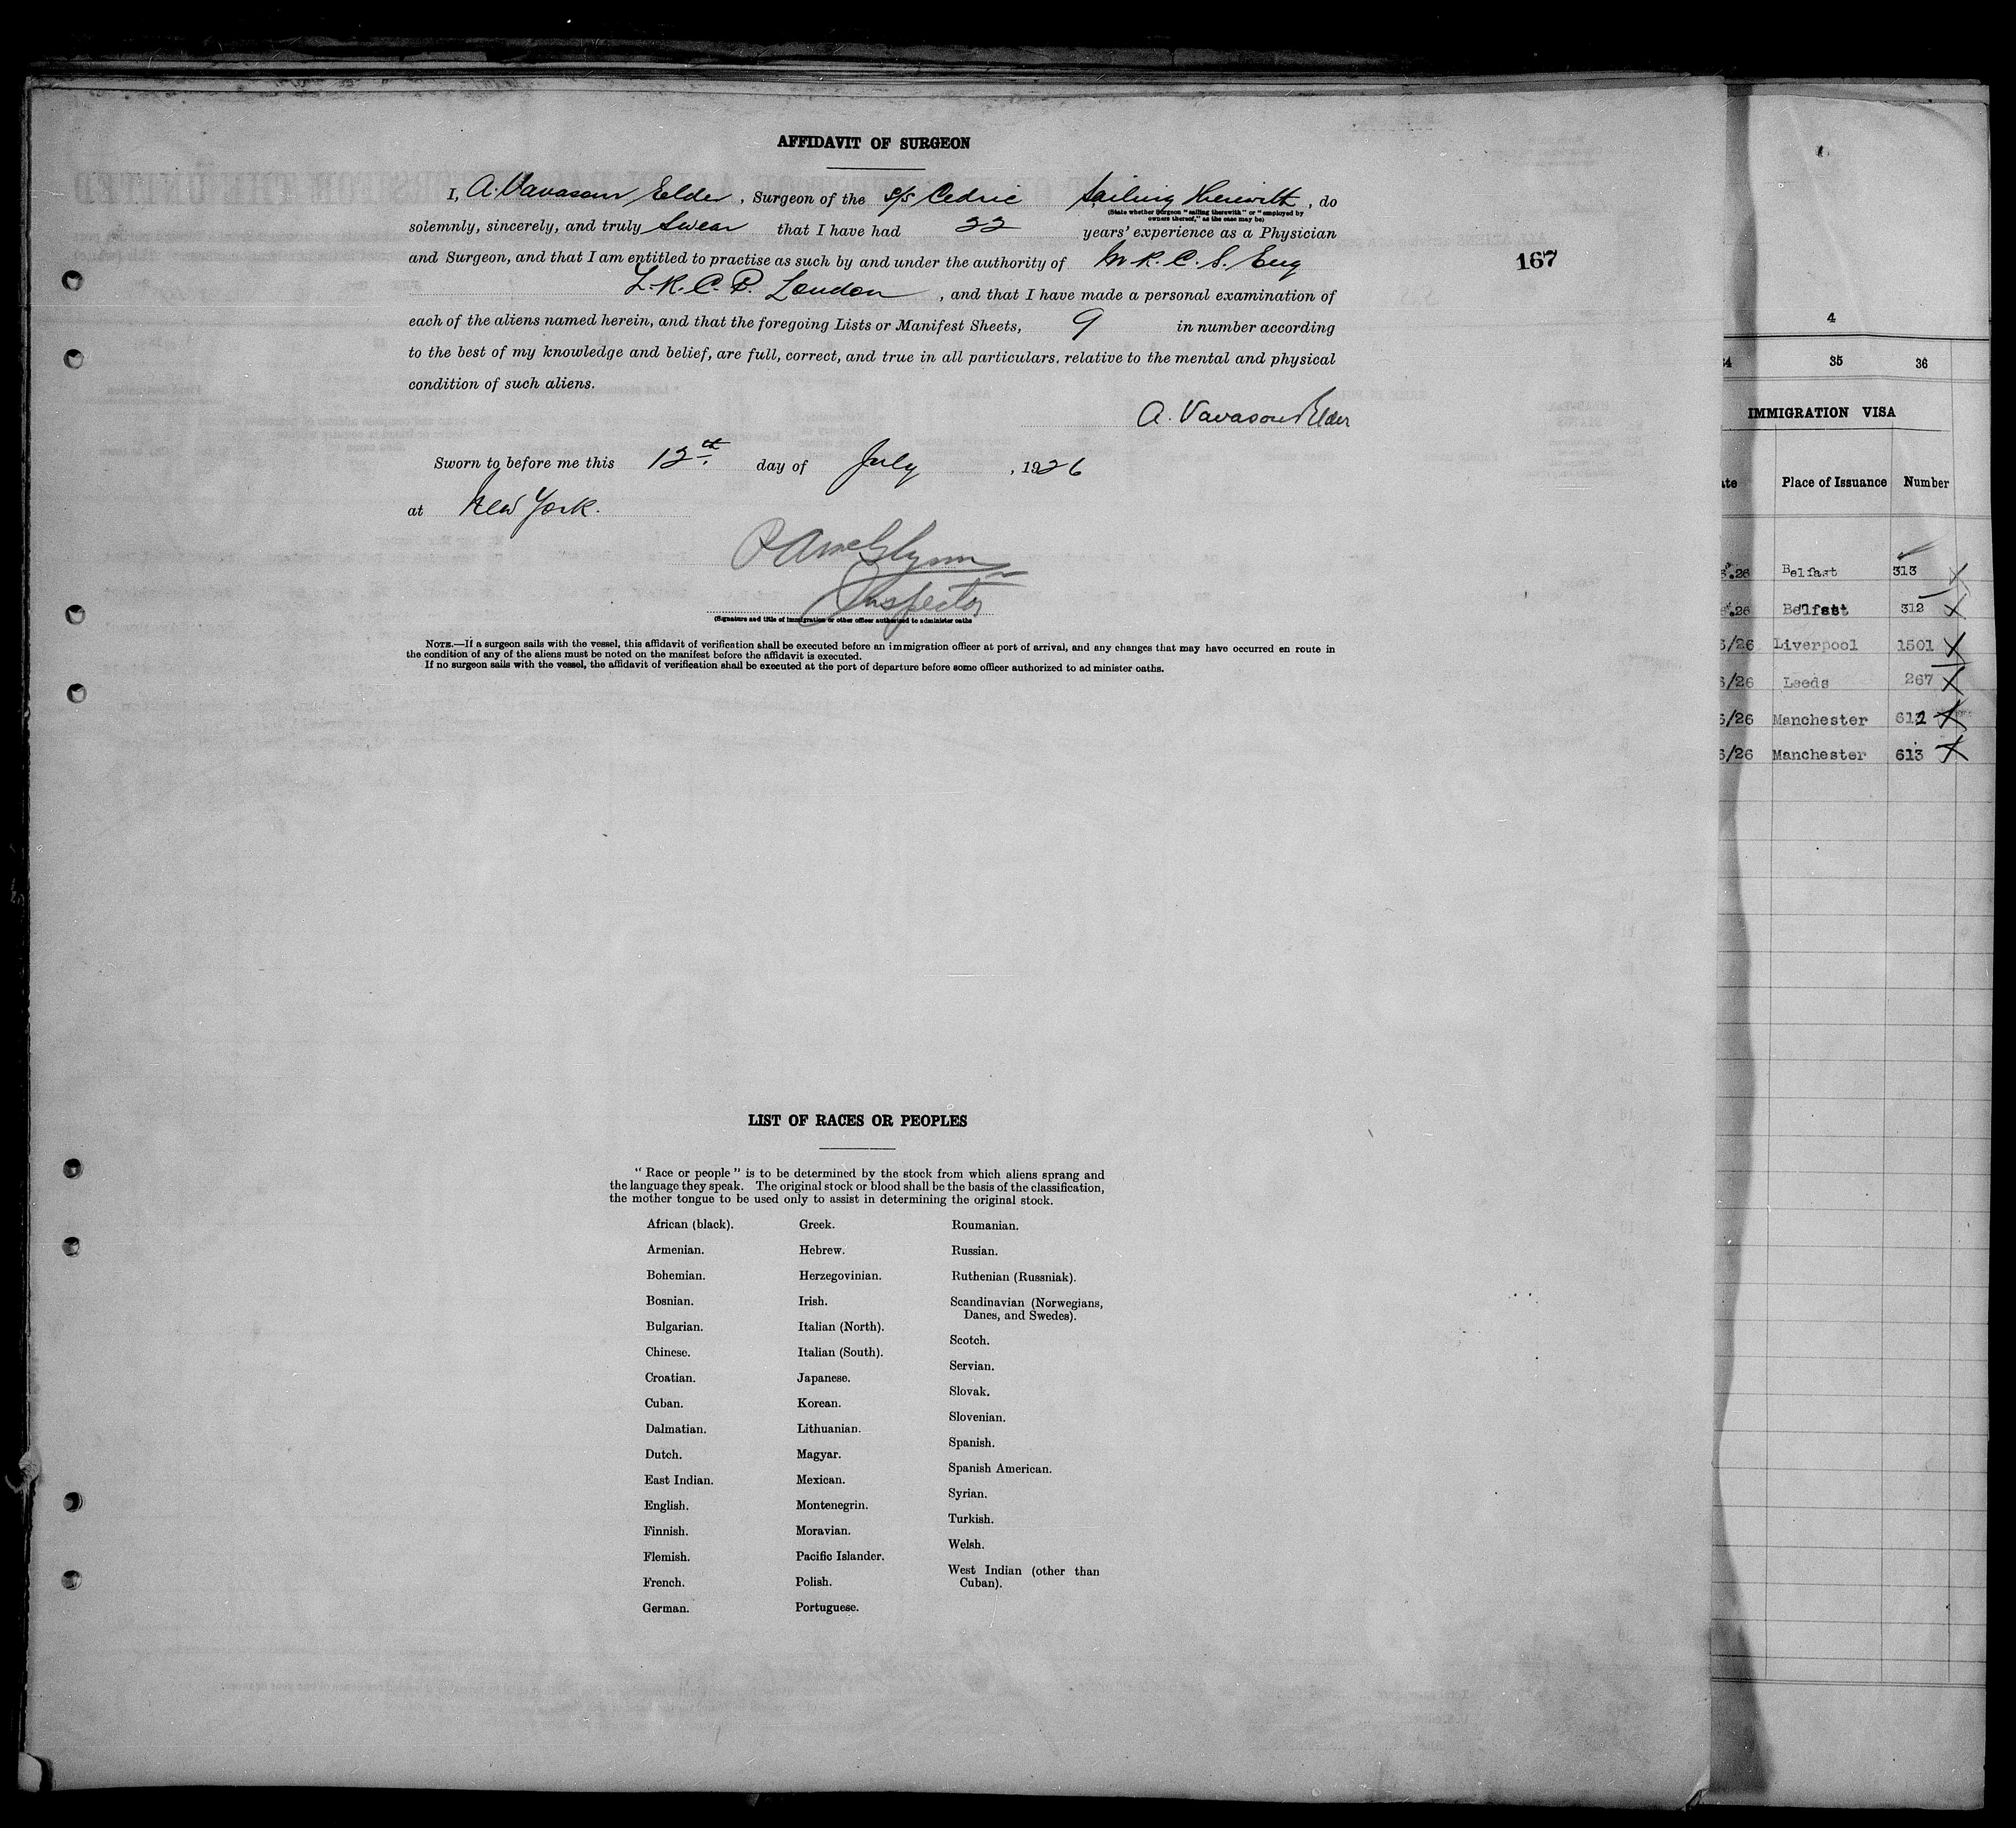 AFFIDAVIT OF SURGEON
I, A. Vavasour Elder, Surgeon of the S/S Cedric Sailing Therewith, do
(State whether Surgeon "sailing therewith" or "employed by owners thereof," as the case may be)
solemnly, sincerely, and truly Swear that I have had 22 years' experience as a Physician
and Surgeon, and that I am entitled to practise as such by and under the authority of M.R.C.S. Eng
L.R.C.P. London, and that I have made a personal examination of
each of the aliens named herein, and that the foregoing Lists or Manifest Sheets, 9 in number according
to the best of my knowledge and belief, are full, correct, and true in all particulars, relative to the mental and physical
condition of such aliens.
A. Vavasour Elder
Sworn to before me this 12th day of July, 1926
at New York.
Inspector
(Signature and title of immigration or other officer authorized to administer oaths
NOTE.—If a surgeon sails with the vessel, this affidavit of verification shall be executed before an immigration officer at port of arrival, and any changes that may have occurred en route in
the condition of any of the aliens must be noted on the manifest before the affidavit is executed.
If no surgeon sails with the vessel, the affidavit of verification shall be executed at the port of departure before some officer authorized to ad minister oaths.
167
LIST OF RACES OR PEOPLES
"Race or people" is to be determined by the stock from which aliens sprang and
the language they speak. The original stock or blood shall be the basis of the classification,
the mother tongue to be used only to assist in determining the original stock.
African (black).
Armenian.
Bohemian.
Bosnian.
Bulgarian.
Chinese.
Croatian.
Cuban.
Dalmatian.
Dutch.
East Indian.
English.
Finnish.
Flemish.
French.
German.
Greek.
Hebrew.
Herzegovinian.
Irish.
Italian (North).
Italian (South).
Japanese.
Korean.
Lithuanian.
Magyar.
Mexican.
Montenegrin.
Moravian.
Pacific Islander.
Polish.
Portuguese.
Roumanian.
Russian.
Ruthenian (Russniak).
Scandinavian (Norwegians,
Danes, and Swedes).
Scotch.
Servian.
Slovak.
Slovenian.
Spanish.
Spanish American.
Syrian.
Turkish.
Welsh.
West Indian (other than
Cuban).
4
35 36
IMMIGRATION VISA
Place of Issuance Number
26 Belfast 313
26 Belfast 312
/26 Liverpool 1501
/26 Leeds 267
/26 Manchester 612
/26 Manchester 613